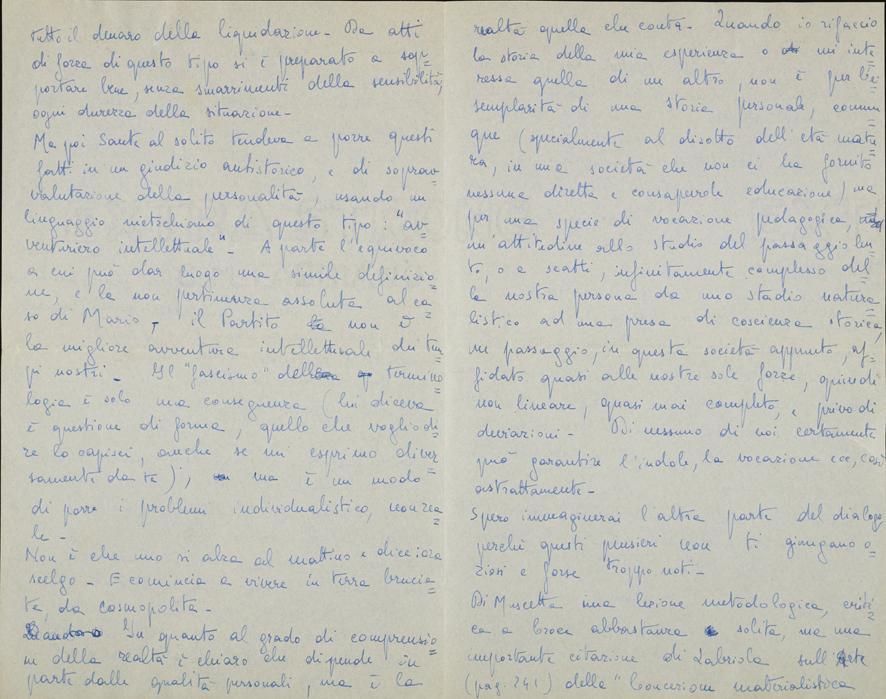 tutto il denaro della liquidazione - Da atti
di forza di questo tipo si è preparato a sop=
portare bene, senza smarrimenti della sensibilità,
ogni durezza della situazione -
Ma poi Sante al solito tendeva a porre questi
fatti in un giudizio antistorico, e di soprav=
valutazione della personalità, usando un
linguaggio nietschiano di questo tipo: "av=
venturiero intellettuale" - A parte l'equivoco
a cui può dar luogo una simile definizio=
ne, e la non pertinenza assoluta al ca=
so di Mario, il Partito non è
la migliore avventura intellettuale dei tem=
pi nostri - Il "fascismo" della termino=
logia è solo una conseguenza (lui diceva
è questione di forma, quello che voglio di=
re lo capisci, anche se mi esprimo diver=
samente da te), ma è un modo
di porre i problemi individualistico, non rea=
le -
Non è che uno si alza al mattino e dice: ora
scelgo - E comincia a vivere in terra brucia=
ta, da cosmopolita -
In quanto al grado di comprensio=
ne della realtà è chiaro che dipende in
parte dalle qualità personali, ma è la
realtà quella che conta - Quando io rifaccio
la storia della mia esperienza o mi inte=
ressa quella di un altro, non è per l'e=
semplarità di una storia personale, comun
que (specialmente al disotto dell'età matu=
ra, in una società che non ci ha fornito
nessuna diretta e consapevole educazione) ma
per una specie di vocazione pedagogica,
un'attitudine allo studio del passaggio len=
to, o a scatti, infinitamente complesso del=
la nostra persona da uno stadio natura=
listico ad una presa di coscienza storica,
un passaggio, in questa società appunto, af=
fidato quasi alle nostre sole forze, quindi
non lineare, quasi mai completo, e privo di
deviazioni - Di nessuno di noi certamente
può garantire l'indole, la vocazione ecc, così
astrattamente -
Spero immaginerai l'altra parte del dialogo
perché questi pensieri non ti giungano o=
ziosi e forse troppo noti -
Di Muscetta una lezione metodologica, criti=
ca a Croce abbastanza solita, ma una
importante citazione di Labriola sull'Arte
(pag. 241) della "Concezione materialistica